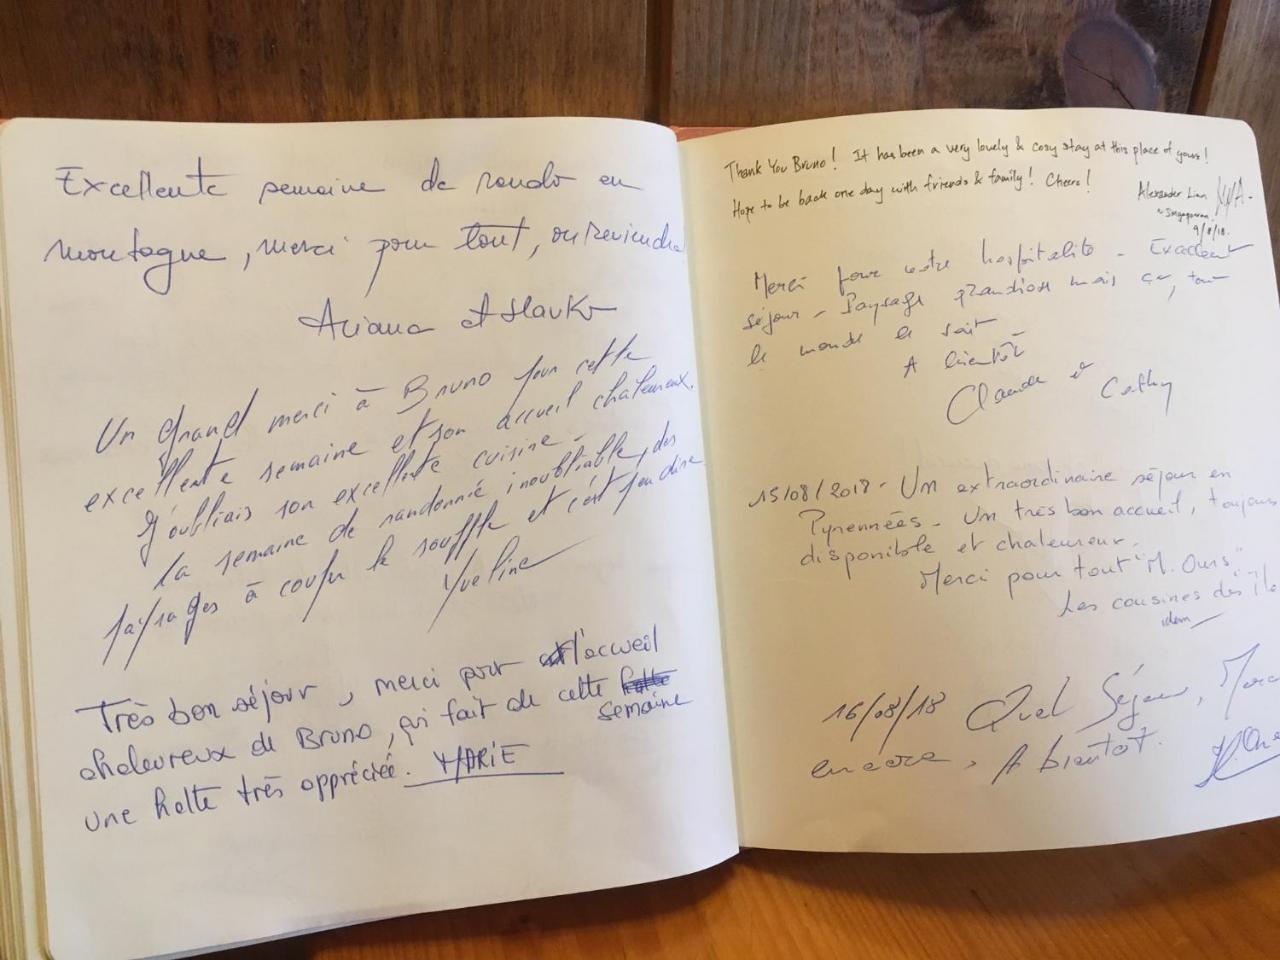 Excellente semaine de rando en
montagne, merci pour tout, on reviendra
Ariana et
Un grand merci à Bruno pour cette
excellente semaine et son accueil chaleureux.
J'oubliais son excellente cuisine -
La semaine de randonnée inoubliable, des
paysages à couper le souffle et c'est peu dire
Yveline
Très bon séjour, merci pour l'accueil
chaleureux de Bruno, qui fait de cette
semaine
une halte très appréciée. MARIE
Thank You Bruno! It has been a very lovely & cozy stay at this place of yours!
Hope to be back one day with friends & family! Cheers!
Alexander Lim
9/8/18.
Merci pour votre hospitalité - Excellent
séjour - Paysage grandiose mais ça, tout
le monde le sait -
A bientôt
Claude et Cathy
15/08/2018 - Un extraordinaire séjour en
Pyrennées - Un très bon accueil, toujours
disponible et chaleureux.
Merci pour tout "M. Ours"
Les cousines des
16/08/18 Quel Séjour,
encore, A bientôt.